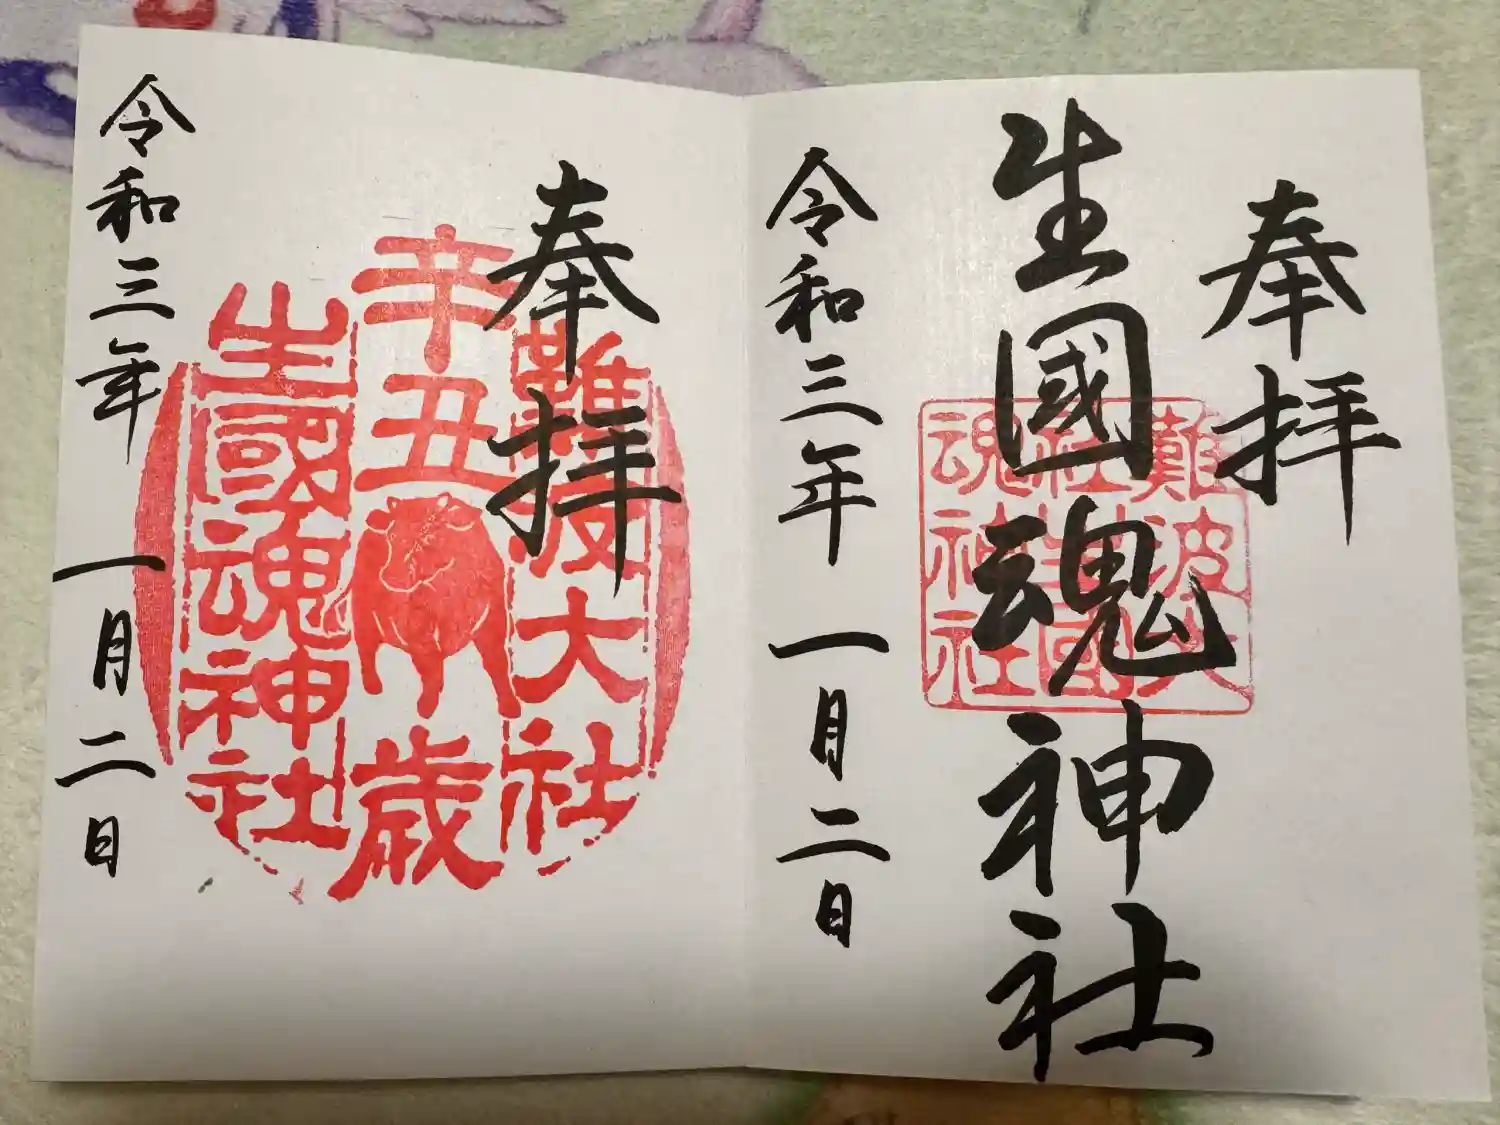 奉拝
生國魂神社
難波大
社生國
魂神社
令和三年 一月二日
奉拝
難波大社
辛丑歳
生國魂神社
令和三年 一月二日